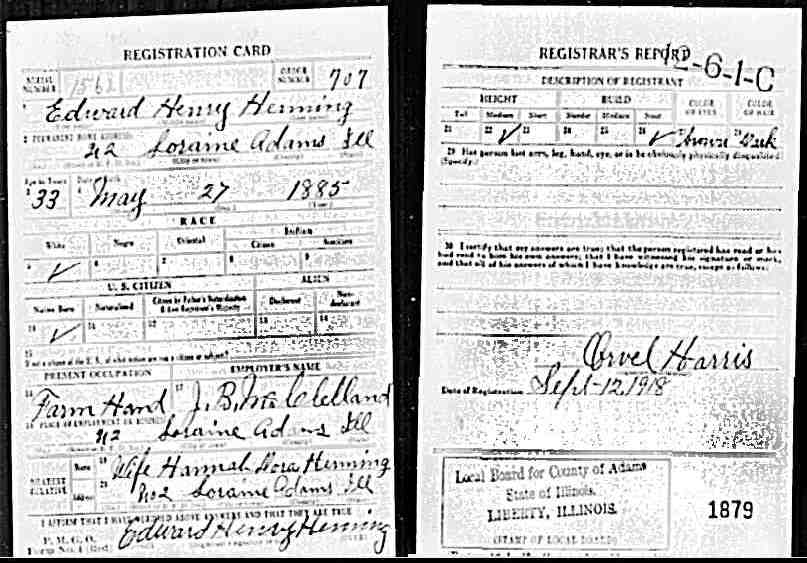 REGISTRATION CARD
SERIAL NUMBER 1562 ORDER NUMBER 707
1 Edward Henry Henning
2 PERMANENT HOME ADDRESS:
Loraine Adams Ill
Age in Years Date of Birth
3 33 4 May 27 1885
RACE
White Negro Oriental Indian
Citizen Noncitizen
5 ✓ 6 7 8 9
U. S. CITIZEN ALIEN
Native Born Naturalized Citizen by Father's Naturalization Before Registrant's Majority Declarant Non-declarant
10 ✓ 11 12 13 14
15
If not a citizen of the U. S., of what nation are you a citizen or subject?
PRESENT OCCUPATION EMPLOYER'S NAME
16 Farm Hand 17 J. B. McClelland
18 PLACE OF EMPLOYMENT OR BUSINESS
Loraine Adams Ill
NEAREST RELATIVE Name 19 Wife Hannah Dora Henning
Address 20 Loraine Adams Ill
I AFFIRM THAT I HAVE VERIFIED ABOVE ANSWERS AND THAT THEY ARE TRUE
P. M. G. O.
Form No. 1 (Red)
Edward Henry Henning
REGISTRAR'S REPORT
12-6-1-C
DESCRIPTION OF REGISTRANT
HEIGHT BUILD COLOR OF EYES COLOR OF HAIR
Tall Medium Short Slender Medium Stout
21 22 ✓ 23 24 25 26 ✓ 27 Brown 28 Dark
29 Has person lost arm, leg, hand, eye, or is he obviously physically disqualified?
(Specify.)
30 I certify that my answers are true; that the person registered has read or has
had read to him his own answers; that I have witnessed his signature or mark,
and that all of his answers of which I have knowledge are true, except as follows:
Orvel Harris
Date of Registration Sept-12, 1918
Local Board for County of Adams
State of Illinois.
LIBERTY, ILLINOIS.
(STAMP OF LOCAL BOARD)
1879